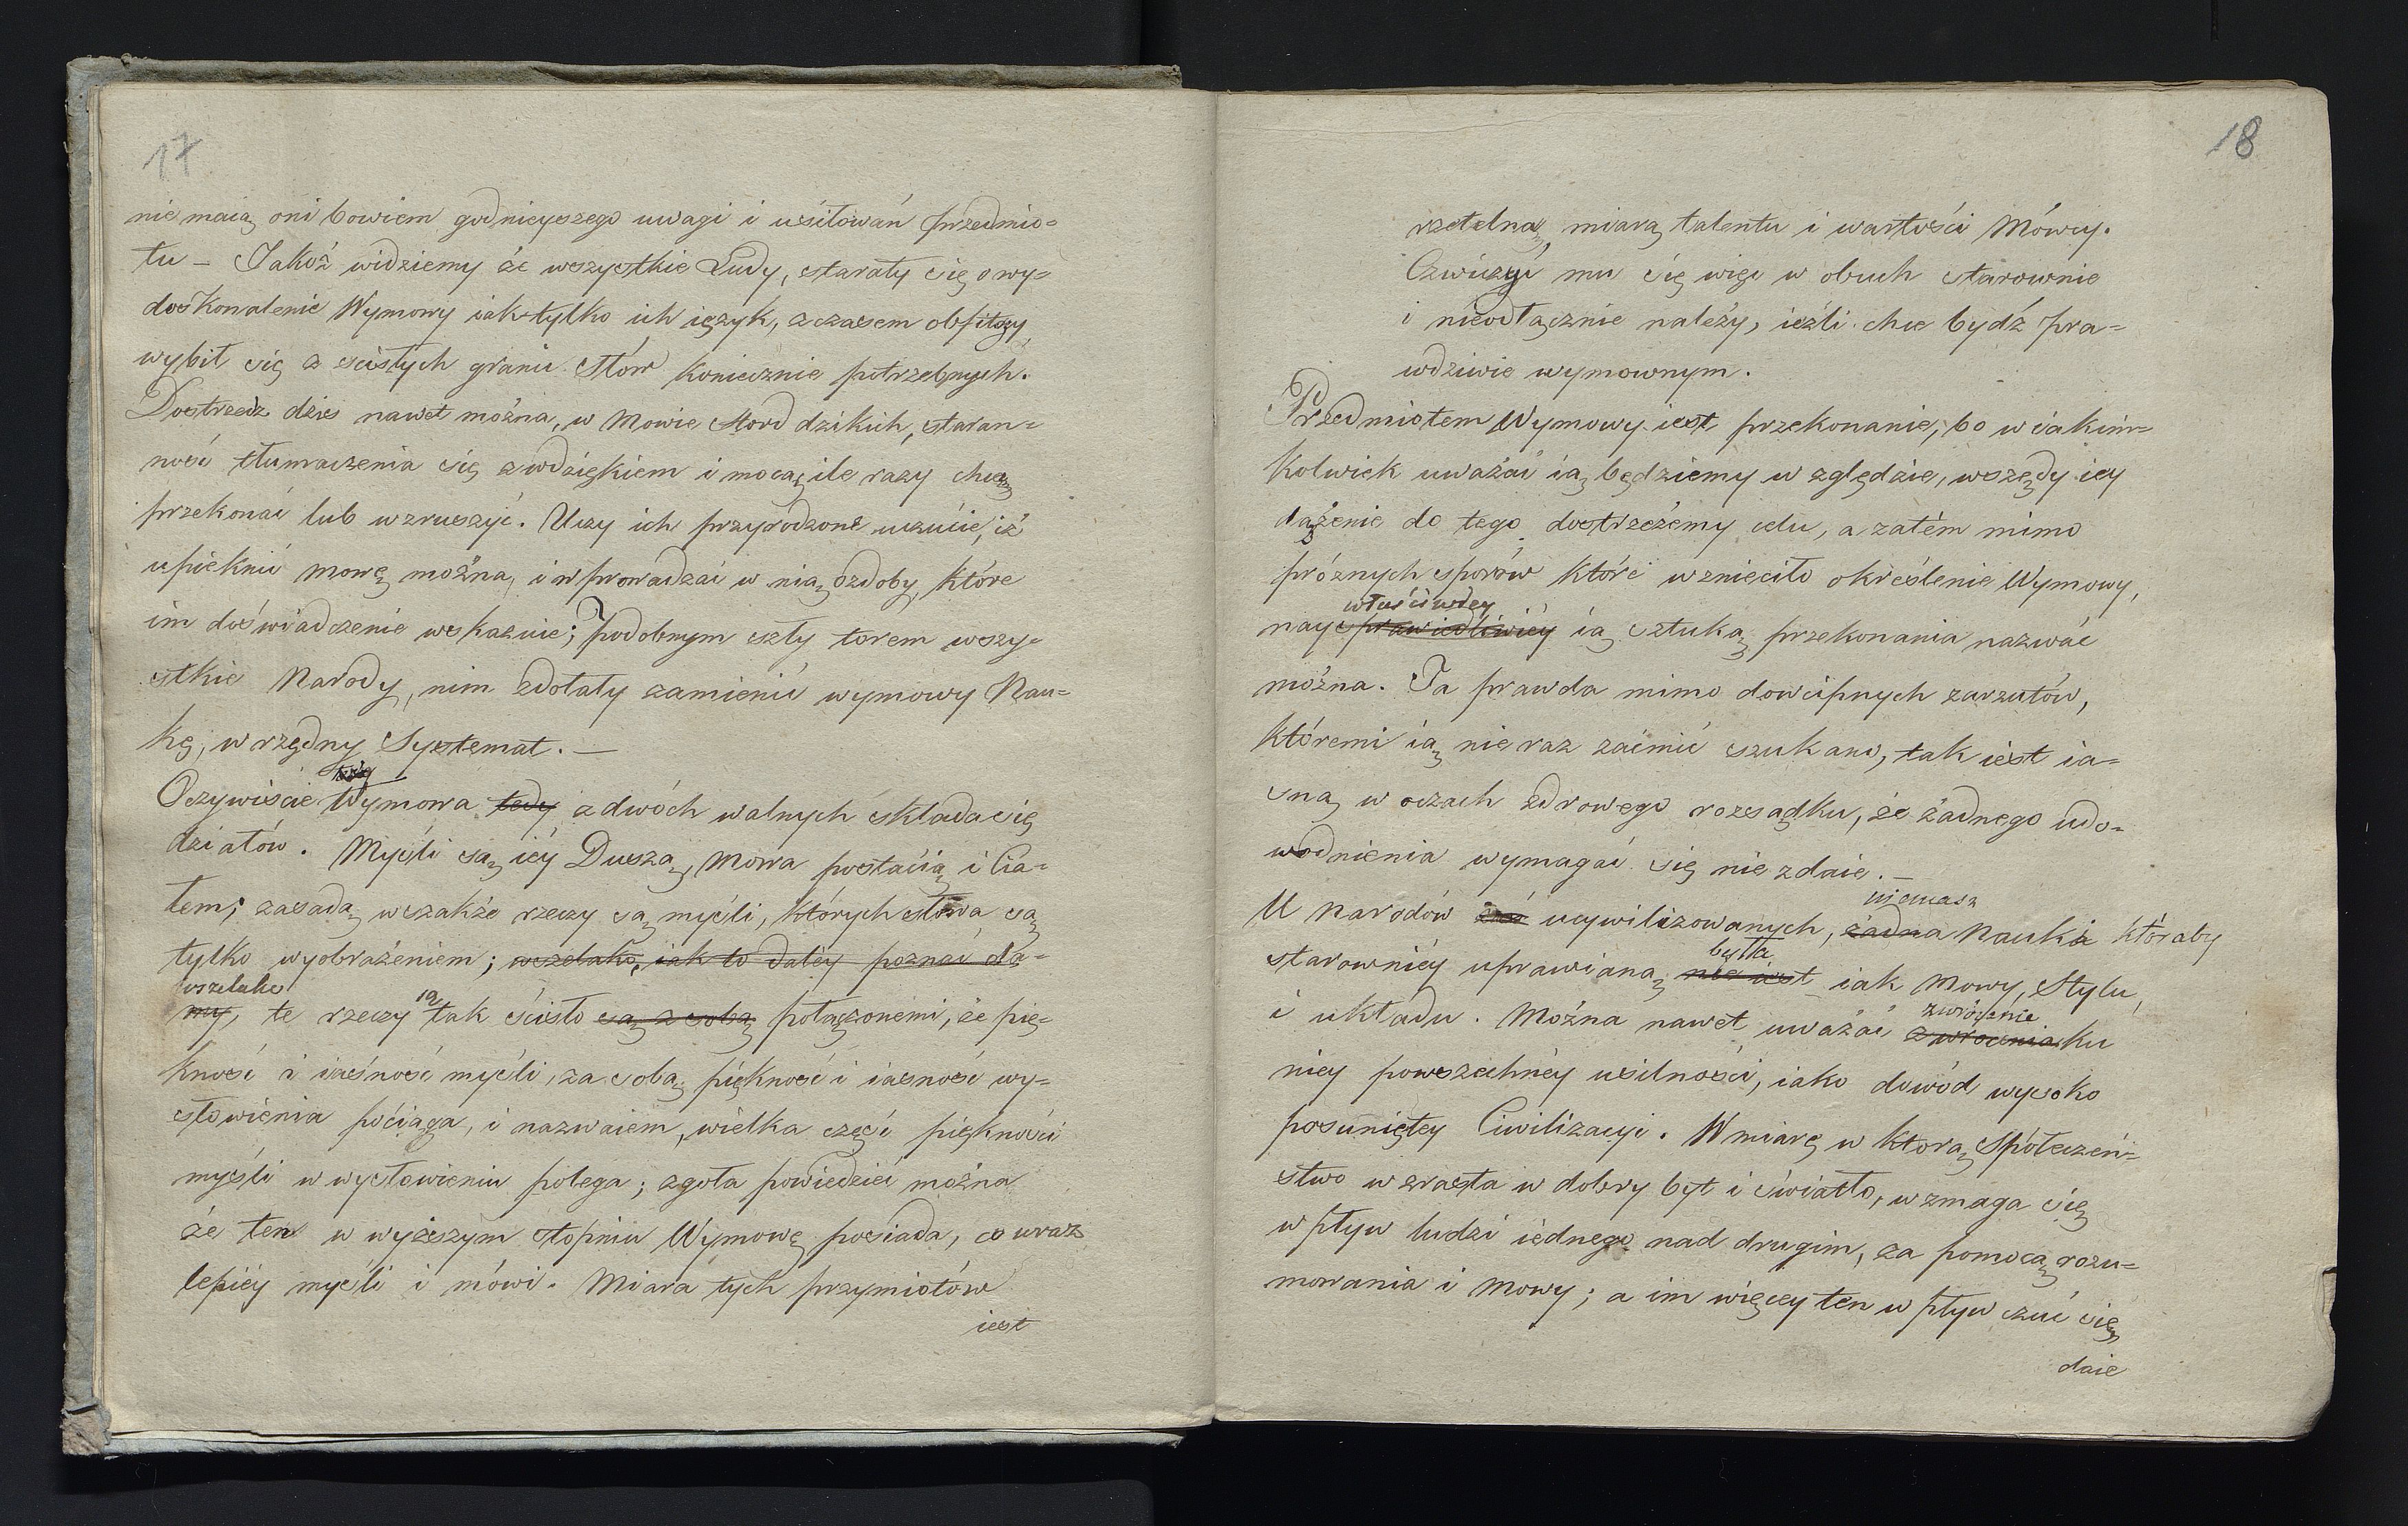 17
nie maią oni bowiem godnieyszego uwagi i usiłowań przedmio=
tu – Jakoż widziemy że wszystkie Ludy, starały się o wy=
doskonalenie Wymowy iak tylko ich ięzyk, z czasem obfitszy,
wybił się z ścisłych granic słów koniecznie potrzebnych.
Dostrzedz dziś nawet można, w mowie Hord dzikich, staran=
ność tłumaczenia się z wdziękiem i mocą, ile razy chcą
przekonać lub wzruszyć. Uczy ich przyrodzone uczucie, iż
upięknić mowę można, i wprowadzać w nią ozdoby, które
im doświadczenie wskazuie; Podobnym szły torem wszy=
stkie Narody, nim zdołały zamienić wymowy Nau=
kę, w rzędny Systemat. —
Oczywiście Wymowa tedy z dwóch walnych składa się
działów. Myśli są iéy Duszą, mowa postacią i Cia=
łem; zasadą wszakże rzeczy są myśli, których słowa są
tylko wyobrażeniem; wszelako, iak to daléy poznać da=
wszelako
my, te rzeczy są tak ściśle są z sobą połączonemi, że pię=
kność i iasność myśli, za sobą piękność i iasność wy=
słowienia pociąga, i nazwaiem, wielka część piękności
myśli w wysłowieniu polega; zgoła powiedzieć można
że ten w wyższym stopniu Wymowę posiada, co wraz
lepiéy myśli i mówi. Miara tych przymiotów
iest
18
rzetelną, miarą talentu i wartości Mówcy.
Cwiczyć mu się więc w obuch starownie
i nieodłącznie należy, ieźli chce bydź pra=
wdziwie wymownym.
Przedmiotem Wymowy iest przekonanie; bo w iakim=
kolwiek uważać ią będziemy w zględzie, wszędy iey
dążenie do tego dostrzeżemy celu, a zatém mimo
próżnych sporów które wznieciło określenie Wymowy,
właściwiey
naysprawiedliwiéy ią sztuką przekonania nazwać
można. Ta prawda mimo dowcipnych zarzutów,
któremi ią nie raz zaćmić szukano, tak iest ia=
sną w oczach zdrowego rozsądku, że żadnego udo=
wodnienia wymagać się nie zdaie. —
niemasz
U narodów ucywilizowanych, żadna nauki któraby
była
starowniéy uprawianą nie iest iak Mowy, Stylu,
zwrócenie
i układu. Można nawet uważać zwrócenia ku
niey powszechnéy usilności, iako dowód wysoko
posuniętey Civilizacyi. W miarę w którą Społeczeń=
stwo wzrasta w dobry byt i światło, wzmaga się
wpływ ludzi iednego nad drugim, za pomocą rozu=
mowania i Mowy; a im więcey ten wpływ czuć się
daie